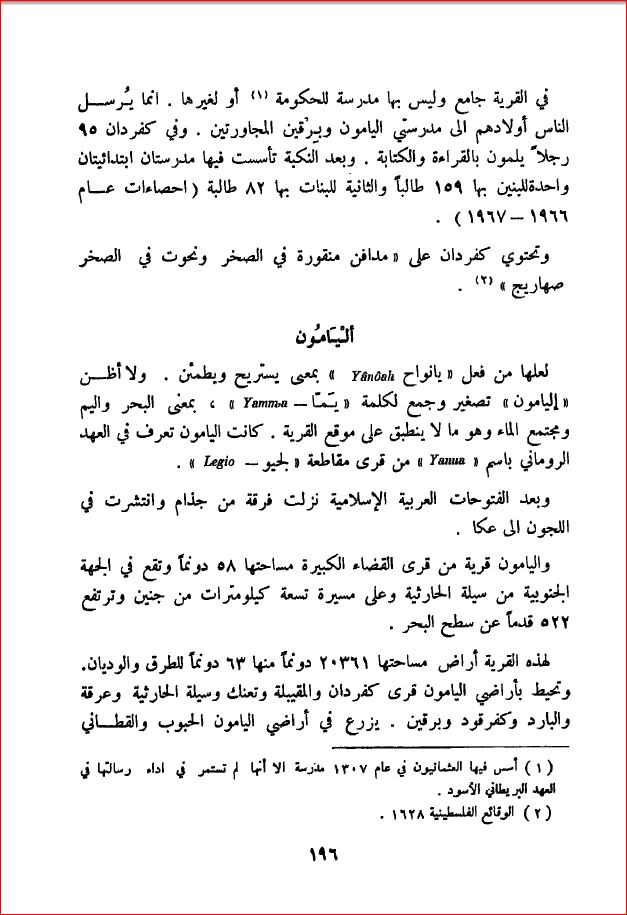 في القرية جامع وليس بها مدرسة للحكومة (١) أو لغيرها . انما يُرســل
الناس أولادهم الى مدرستي اليامون وبرقين المجاورتين . وفي كفردان ٩٥
رجلاً يلمون بالقراءة والكتابة . وبعد النكبة تأسست فيها مدرستان ابتدائيتان
واحدة للبنين بها ١٥٩ طالباً والثانية للبنات بها ٨٢ طالبة ( احصاءات عــام
١٩٦٦ – ١٩٦٧ ) .
وتحتوي كفردان على « مدافن منقورة في الصخر ونحوت في الصخر
صهاريج » (٢) .
أليَامُون
لعلها من فعل « يانواح Yânôah » بمعنى يستريح ويطمئن . ولا أظــن
« إليامون » تصغير وجمع لكلمة « يَمّا – Yamma » ، بمعنى البحر واليم
ومجتمع الماء وهو ما لا ينطبق على موقع القرية . كانت اليامون تعرف في العهد
الروماني باسم « Yanua » من قرى مقاطعة « لجيو – Legio » .
وبعد الفتوحات العربية الإسلامية نزلت فرقة من جذام وانتشرت في
اللجون الى عكا .
واليامون قرية من قرى القضاء الكبيرة مساحتها ٥٨ دونماً وتقع في الجهة
الجنوبية من سيلة الحارثية وعلى مسيرة تسعة كيلومترات من جنين وترتفع
٥٢٢ قدماً عن سطح البحر .
لهذه القرية أراض مساحتها ٢٠٣٦١ دونماً منها ٦٣ دونماً للطرق والوديان.
وتحيط بأراضي اليامون قرى كفردان والمقيبلة وتعنك وسيلة الحارثية وعرقة
والبارد وكفرقود وبرقين . يزرع في أراضي اليامون الحبوب والقطــاني
( ١ ) أسس فيها العثمانيون في عام ١٣٠٧ مدرسة الا أنها لم تستمر في اداء رسالتها في
العهد البريطاني الأسود .
( ٢ ) الوقائع الفلسطينية ١٦٢٨ .
١٩٦